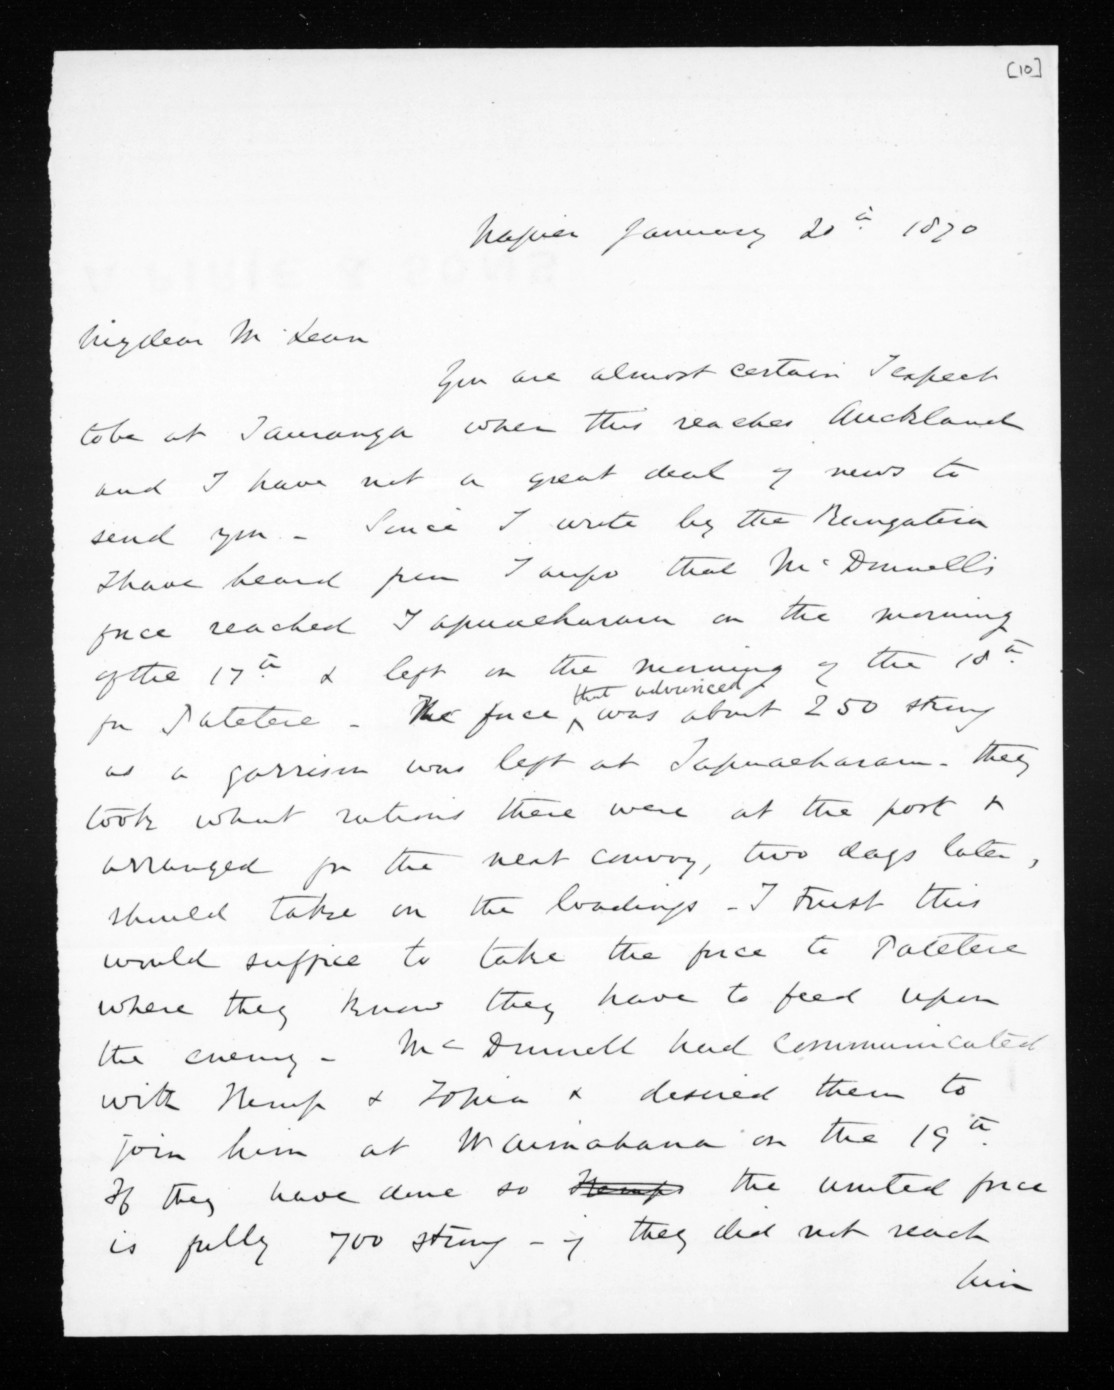 [10]
Napier January 20th 1870
My dear McLean
You are almost certain I expect
to be at Tauranga when this reaches Auckland
and I have not a great deal of news to
send you - Since I wrote by the Rangatira
I have heard from Taupo that McDonnell's
force reached Tapuaeharuru on the morning
of the 17th & left on the morning of the 18th
for Patetere - The force that advanced was about 250 strong
as a garrison was left at Tapuaeharuru - they
took what rations there were at the post &
arranged for the next convoy, two days later,
should take on the loadings - I trust this
would suffice to take the force to Patetere
where they know they have to feed upon
the enemy - McDonnell had communicated
with Kemp & Topia & desired them to
join him at Waimahana on the 19th.
If they have done so Kemps the united force
is fully 700 strong - if they did not reach
him
A PIRIE & SONS
A PIRIE & SONS